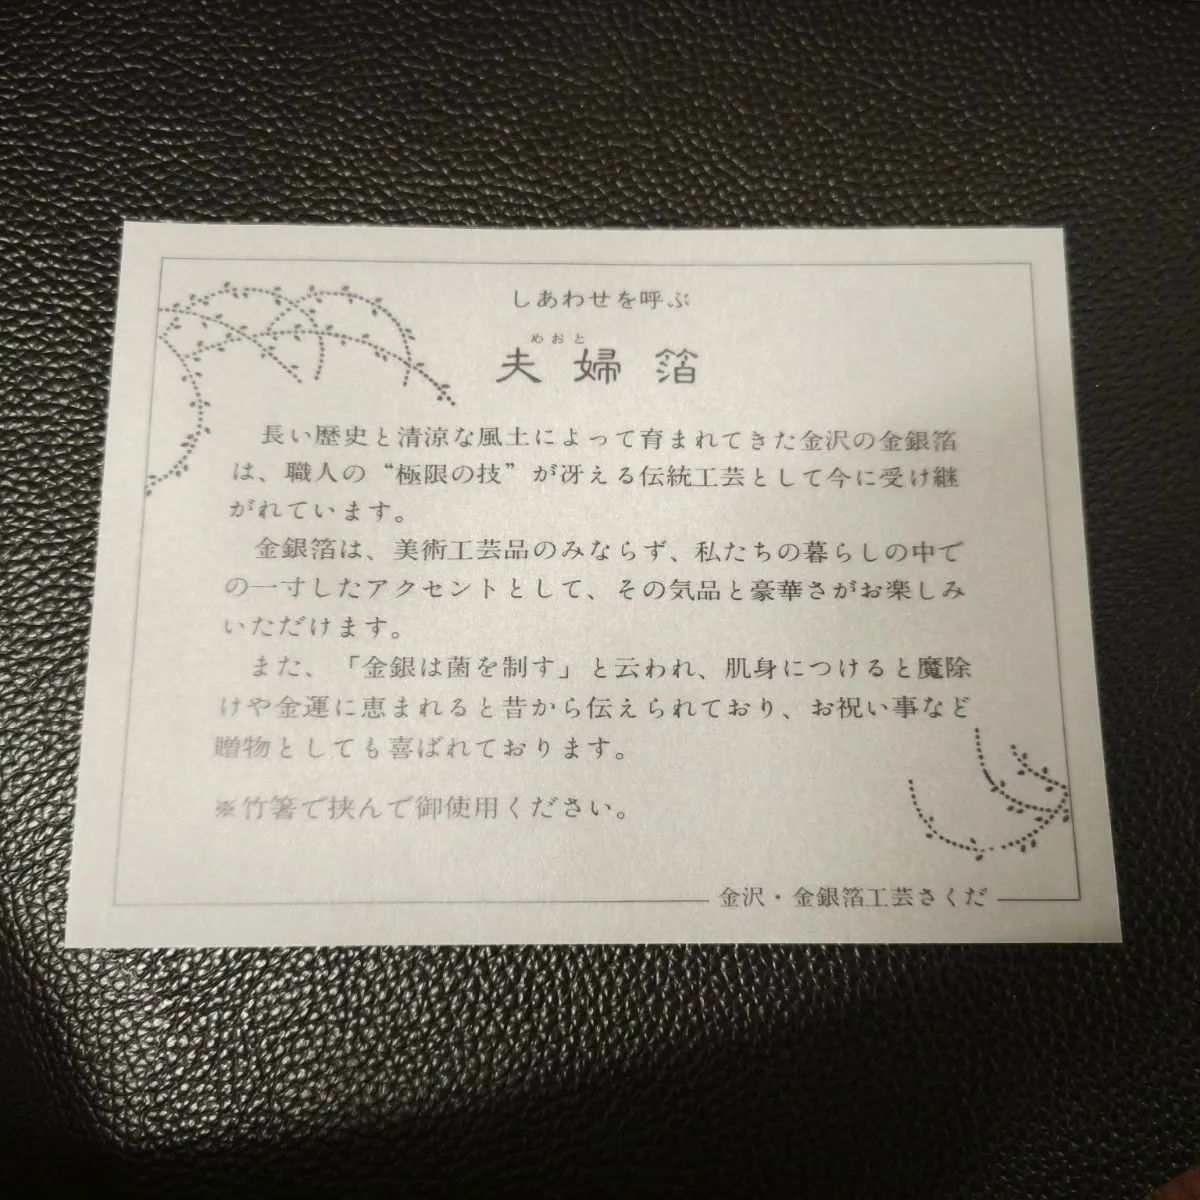 しあわせを呼ぶ
めおと
夫婦箔
長い歴史と清涼な風土によって育まれてきた金沢の金銀箔
は、職人の“極限の技”が冴える伝統工芸として今に受け継
がれています。
金銀箔は、美術工芸品のみならず、私たちの暮らしの中で
の一寸したアクセントとして、その気品と豪華さがお楽しみ
いただけます。
また、「金銀は菌を制す」と云われ、肌身につけると魔除
けや金運に恵まれると昔から伝えられており、お祝い事など
贈物としても喜ばれております。
※竹箸で挟んで御使用ください。
金沢・金銀箔工芸さくだ